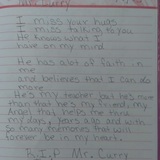 I miss your hugs
I miss talking to you
He knows what I
have on my mind
He has alot of faith in
me
and believes that I can do
more
He's my teacher, but he's more
than that he's my friend, my
Angel that helps me thru
my days, years a go and with
so many memories that will
forever be in my heart.
R.I.P Mr. Curry